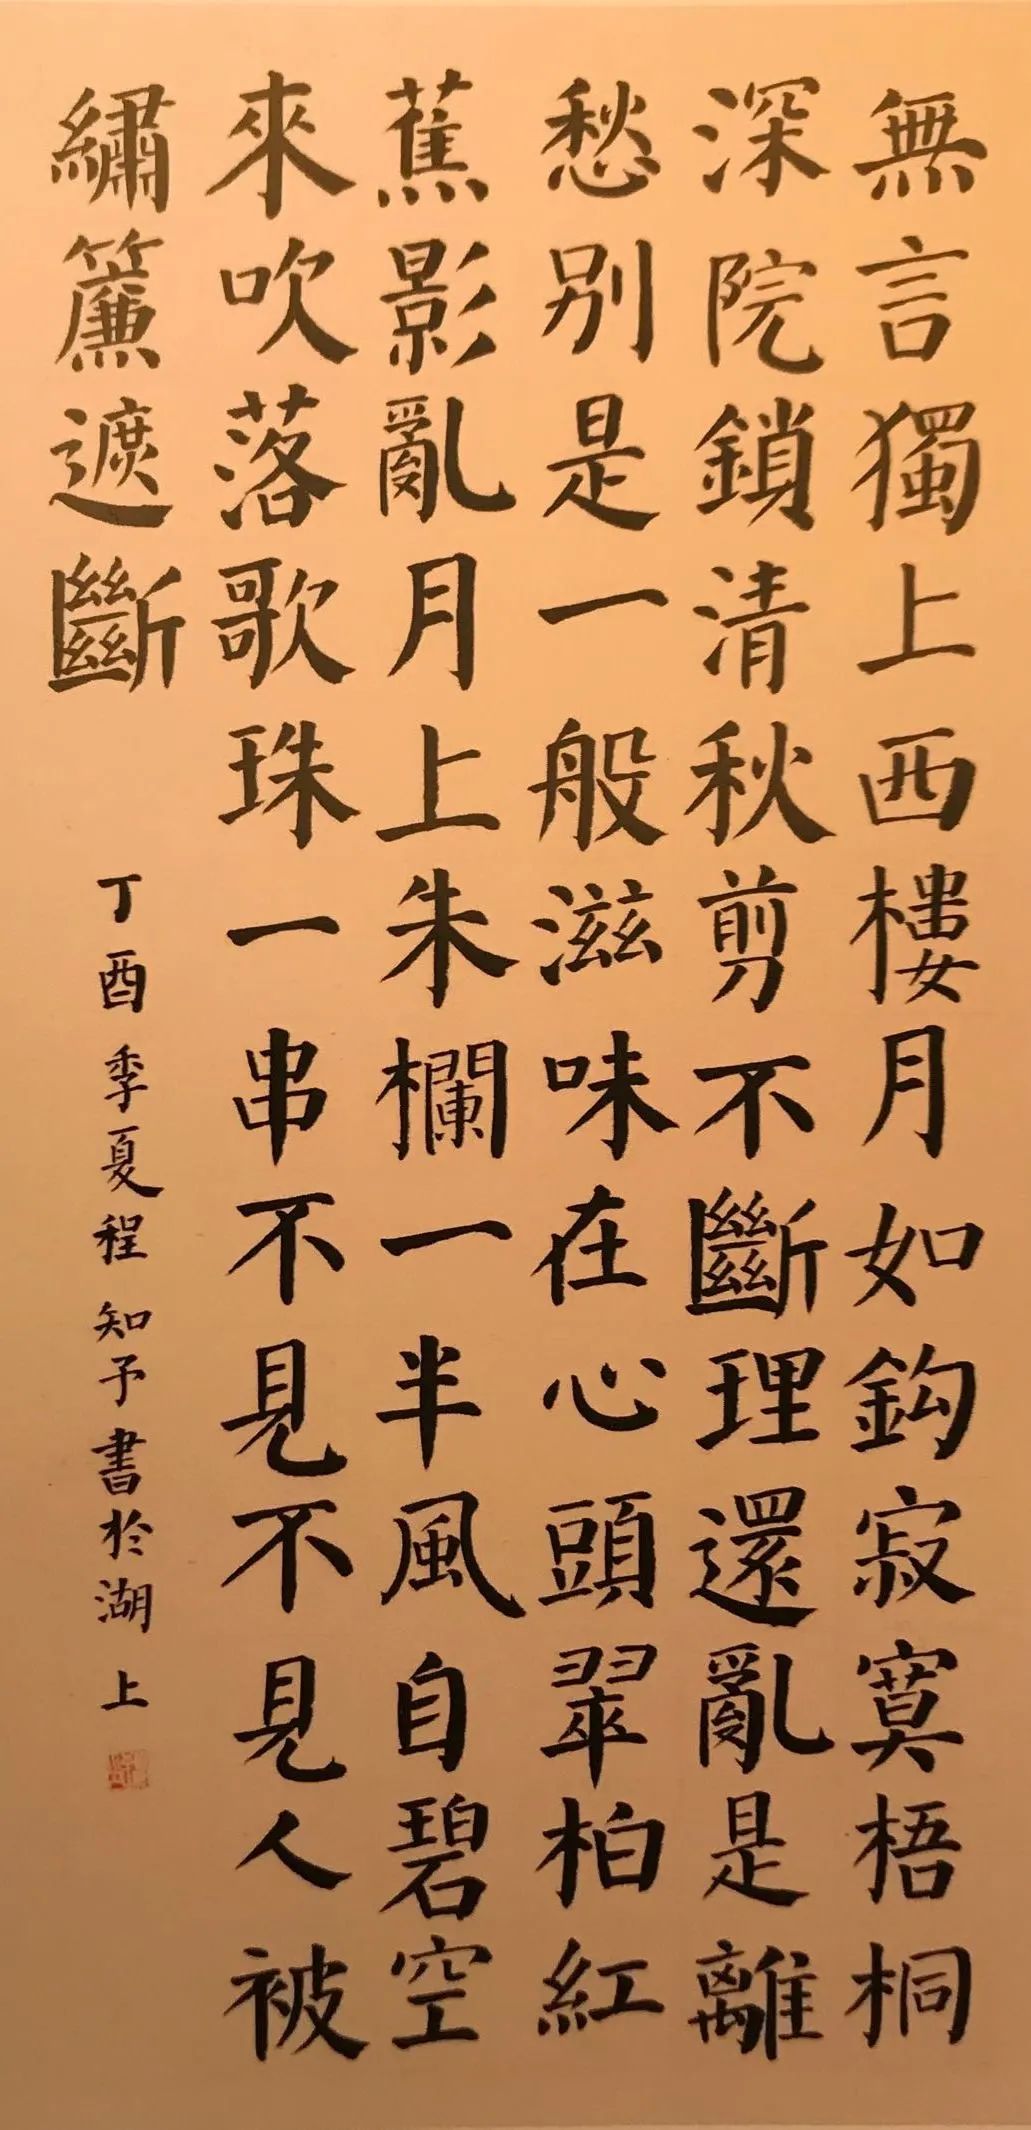 無言獨上西樓月如鈎寂寞梧桐
深院鎖清秋剪不斷理還亂是離
愁别是一般滋味在心頭翠柏紅
蕉影亂月上朱欄一半風自碧空
來吹落歌珠一串不見不見人被
繡簾遮斷
丁酉季夏程知予書於湖上